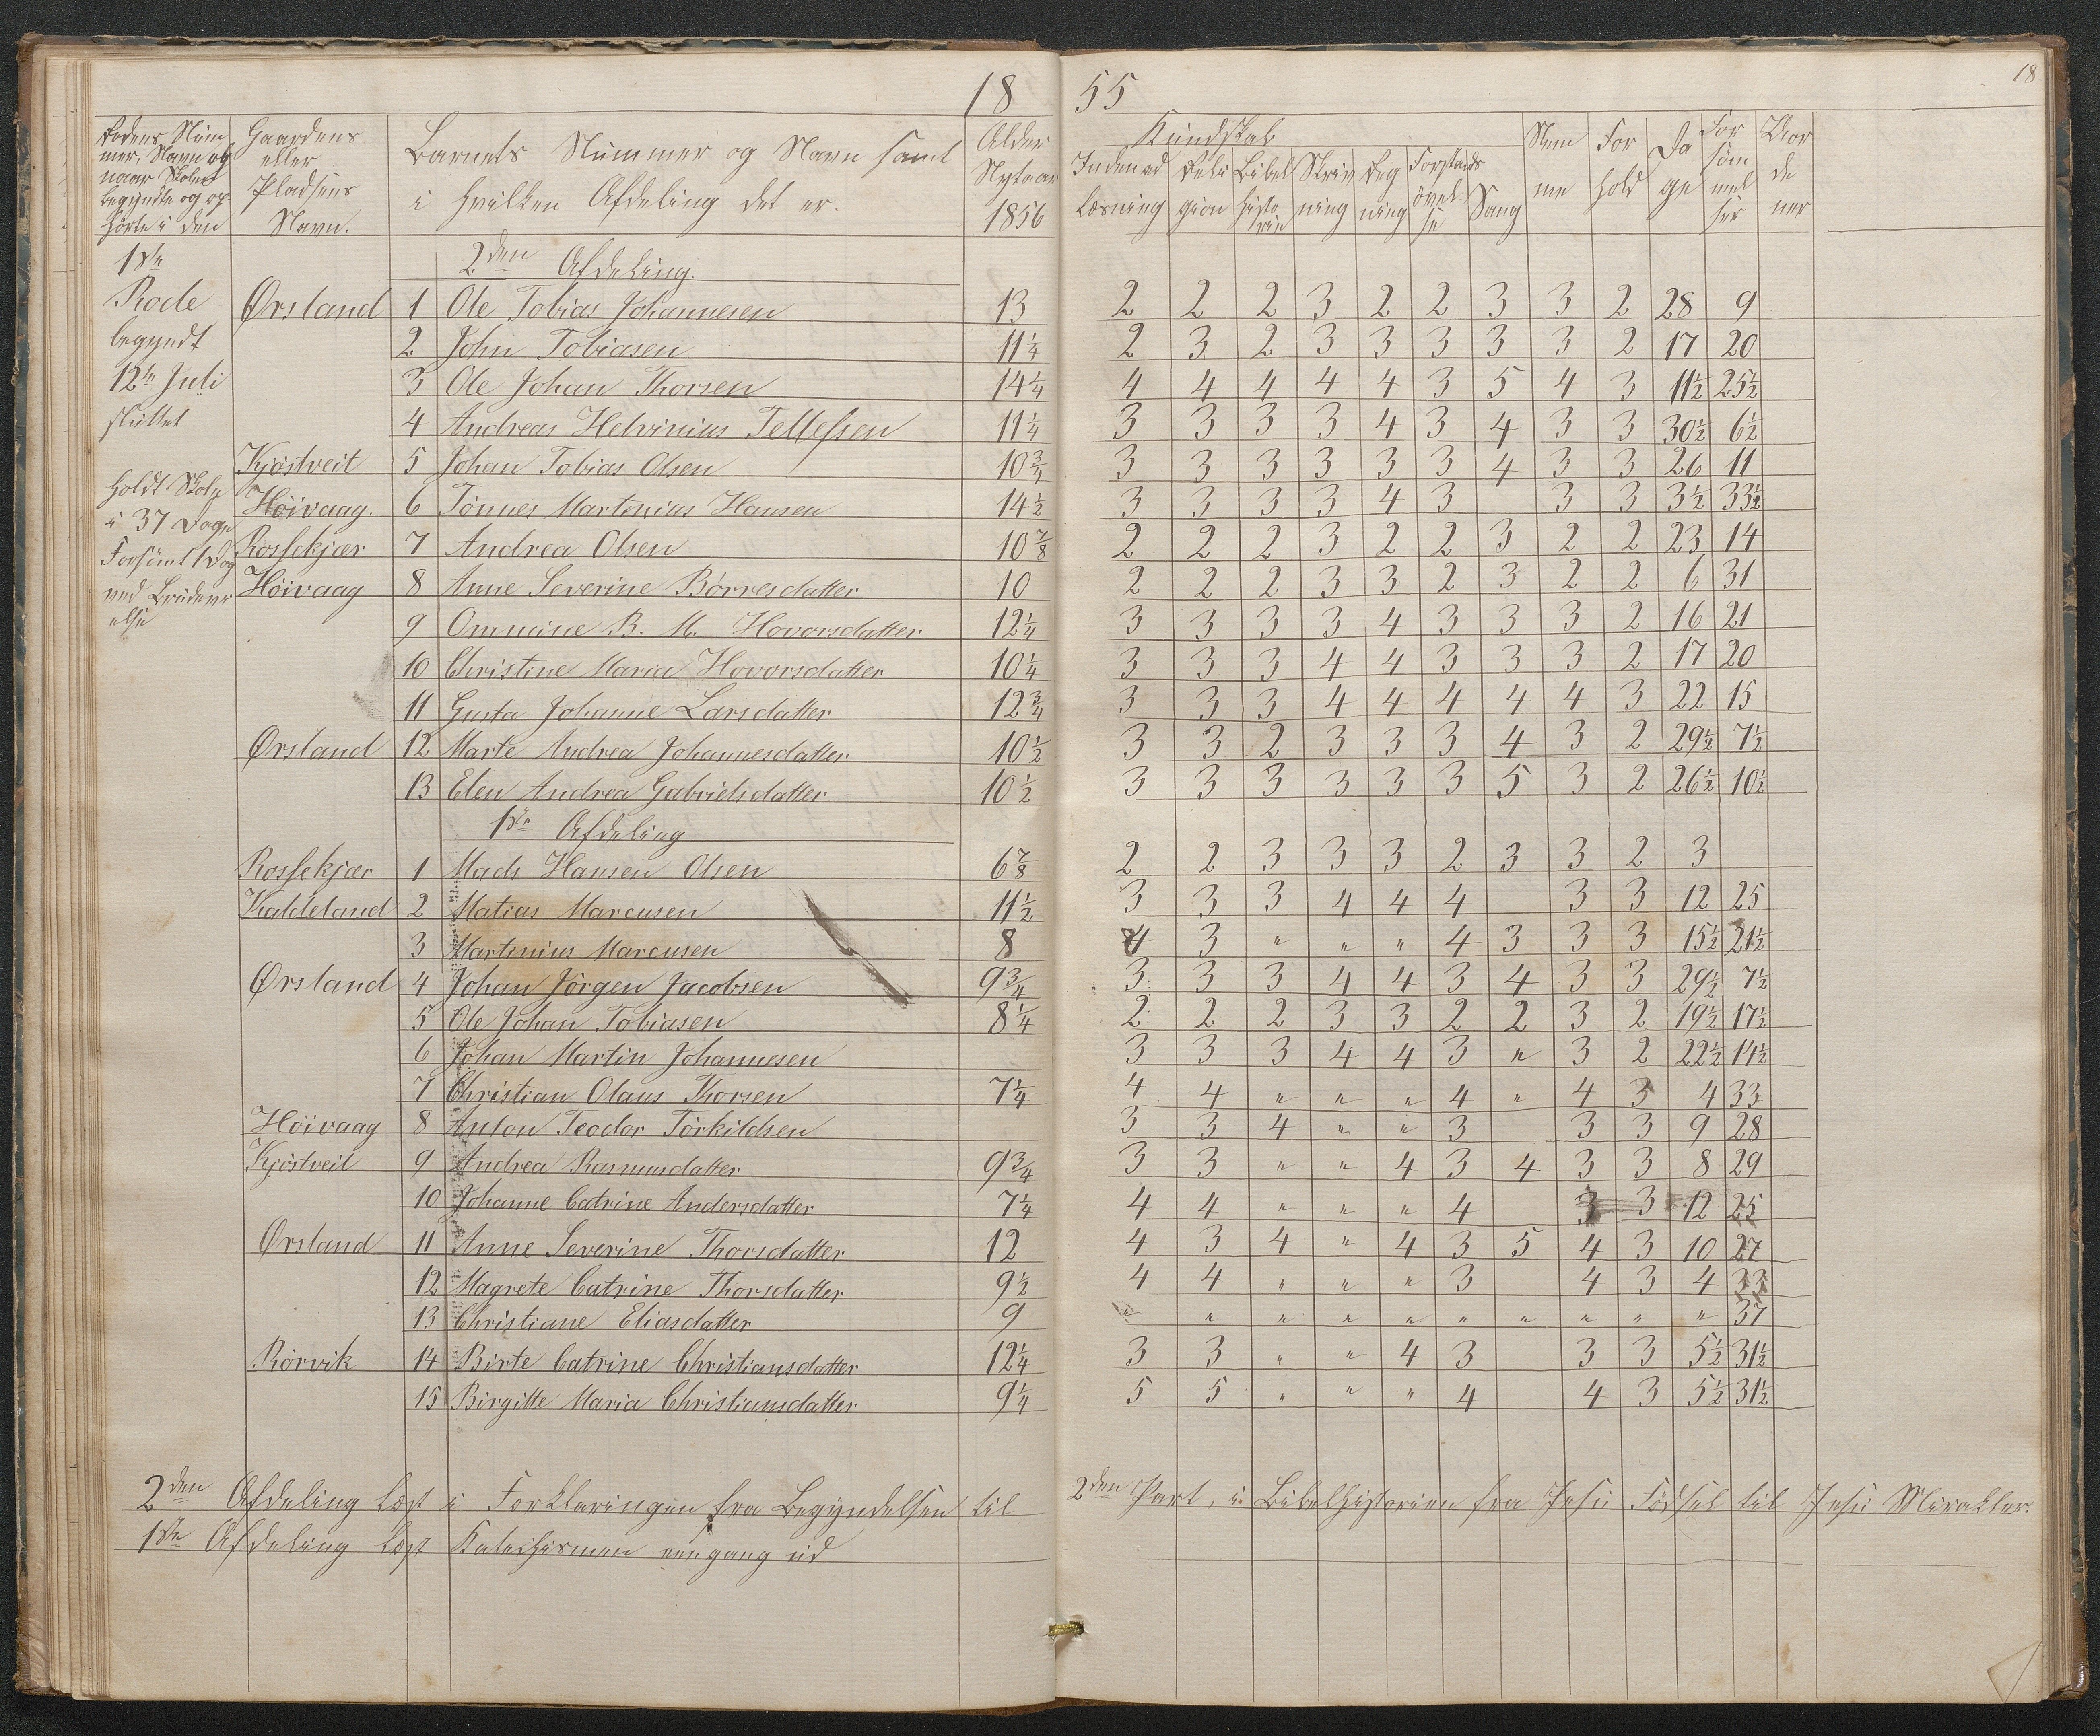 18 55
18
Rodens Num
mer, Navn og
naar Skolen
begyndte og op
hørte i den
Gaardens
eller
Pladsens
Navn.
Barnets Nummer og Navn samt
i hvilken Afdeling det er.
Alder
Nytaar
1856
Kundskab
Indenad
Læsning
Reli
gion
Bibel
histo
rie
Skriv
ning
Reg
ning
Forstands
øvel
se
Sang
Nem
me
For
hold
Da
ge
For
søm
mel
ser
Vor
de
ner
1ste
Rode
begyndt
12te Juli
sluttet
holdt Skole
i 37 Dage
Forsømt 1 Dag
ved
else
2den Afdeling.
Ørsland 1 Ole Tobias Johannesen 13 2 2 2 3 2 2 3 3 2 28 9
2 John Tobiasen 11 1/4 2 3 2 3 3 3 3 3 2 17 20
3 Ole Johan Thorsen 14 1/4 4 4 4 4 4 3 5 4 3 11 1/2 25 1/2
4 Andreas Helvinius Tellefsen 11 1/4 3 3 3 3 4 3 4 3 3 30 1/2 6 1/2
Kjøstveit 5 Johan Tobias Olsen 10 3/4 3 3 3 3 3 3 4 3 3 26 11
Høivaag. 6 Tønnes Martinius Hansen 14 1/2 3 3 3 3 4 3 3 3 3 1/2 33 1/2
Rossekjær 7 Andrea Olsen 10 7/8 2 2 2 3 2 2 3 2 2 23 14
Høivaag 8 Anne Severine Børresdatter 10 2 2 2 3 3 2 3 2 2 6 31
9 Ommine B. M. Hovorsdatter 12 1/4 3 3 3 3 4 3 3 3 2 16 21
10 Christine Maria Hovorsdatter 10 1/4 3 3 3 4 4 3 3 3 2 17 20
11 Gusta Johanne Larsdatter 12 3/4 3 3 3 4 4 4 4 4 3 22 15
Ørsland 12 Marte Andrea Johannesdatter 10 1/2 3 3 2 3 3 3 4 3 2 29 1/2 7 1/2
13 Elen Andrea Gabrielsdatter 10 1/2 3 3 3 3 3 3 5 3 2 26 1/2 10 1/2
1ste Afdeling
Rossekjær 1 Mads Hansen Olsen 6 7/8 2 2 3 3 3 2 3 3 2 3
Kaldeland 2 Matias Marcusen 11 1/2 3 3 3 4 4 4 3 3 12 25
3 Martinius Marcusen 8 4 3 " " " 4 3 3 3 15 1/2 21 1/2
Ørsland 4 Johan Jörgen Jacobsen 9 3/4 3 3 3 4 4 3 4 3 3 29 1/2 7 1/2
5 Ole Johan Tobiasen 8 1/4 2 2 2 3 3 2 2 3 2 19 1/2 17 1/2
6 Johan Martin Johannesen 3 3 3 4 4 3 " 3 2 22 1/2 14 1/2
7 Christian Olaus Thorsen 7 1/4 4 4 " " " 4 " 4 3 4 33
Høivaag 8 Anton Teodor Törkildsen 3 3 4 " " 3 3 3 9 28
Kjöstveit 9 Andrea Rasmusdatter 9 3/4 3 3 " " 4 3 4 3 3 8 29
10 Johanne Catrine Andersdatter 7 1/4 4 4 " " " 4 3 3 12 25
Ørsland 11 Anne Severine Thorsdatter 12 4 3 4 " 4 3 5 4 3 10 27
12 Magrete Catrine Thorsdatter 9 1/2 4 4 " " " 3 4 3 4 33
13 Christiane Eliasdatter 9 " " " " " " " " " " 37
Rörvik 14 Birte Catrine Christiansdatter 12 1/4 3 3 " " 4 3 3 3 5 1/2 31 1/2
15 Birgitte Maria Christiansdatter 9 1/4 5 5 " " " 4 4 3 5 1/2 31 1/2
2den Afdeling læst i Forklaringen fra Begyndelsen til 2den Part, i Bibelhistorien fra Jesu Fødsel til Jesu Mirakler.
1ste Afdeling læst Katechismen eengang ud